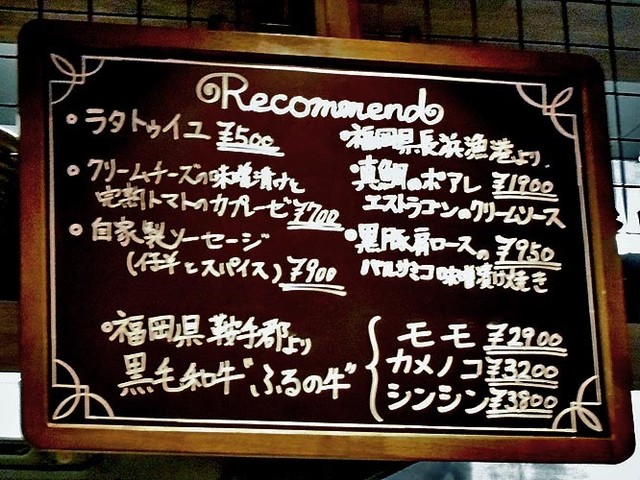 Recommend
・ラタトゥイユ ¥500
・クリームチーズの味噌漬けと
完熟トマトのカプレーゼ ¥700
・自家製ソーセージ
(仔羊とスパイス) ¥900
・福岡県長浜漁港より.
真鯛のポアレ ¥1900
エストラゴンのクリームソース
・黒豚肩ロースの ¥950
バルサミコ味噌漬け焼き
・福岡県鞍手郡より
黒毛和牛"ふるの牛"
モモ ¥2900
カメノコ ¥3200
シンシン ¥3800